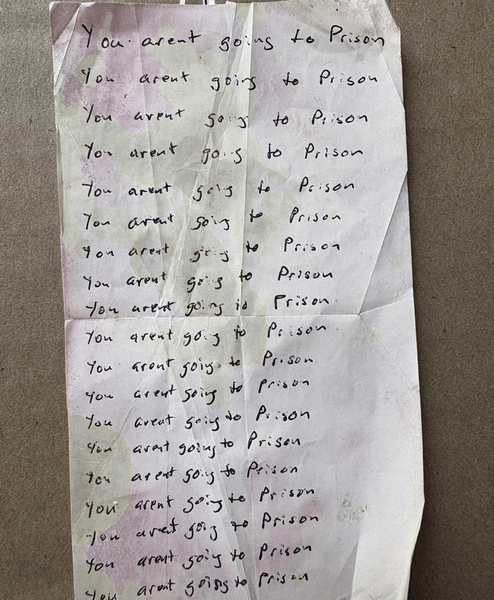 You arent going to Prison
You arent going to Prison
You arent going to Prison
You arent going to Prison
You arent going to Prison
You arent going to Prison
You arent going to Prison
You arent going to Prison
You arent going to Prison
You arent going to Prison
You arent going to Prison
You arent going to Prison
You arent going to Prison
You arent going to Prison
You arent going to Prison
You arent going to Prison
You arent going to Prison
You arent going to Prison
You arent going to Prison